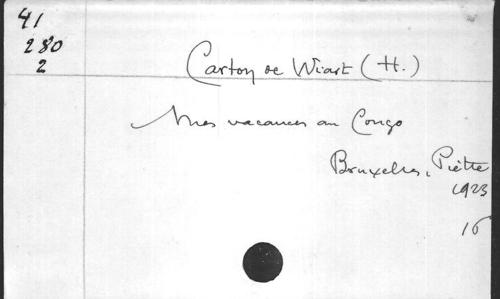 41
280
2
Carton de Wiart (H.)
Mes vacances au Congo
Bruxelles, Piette
1923
16